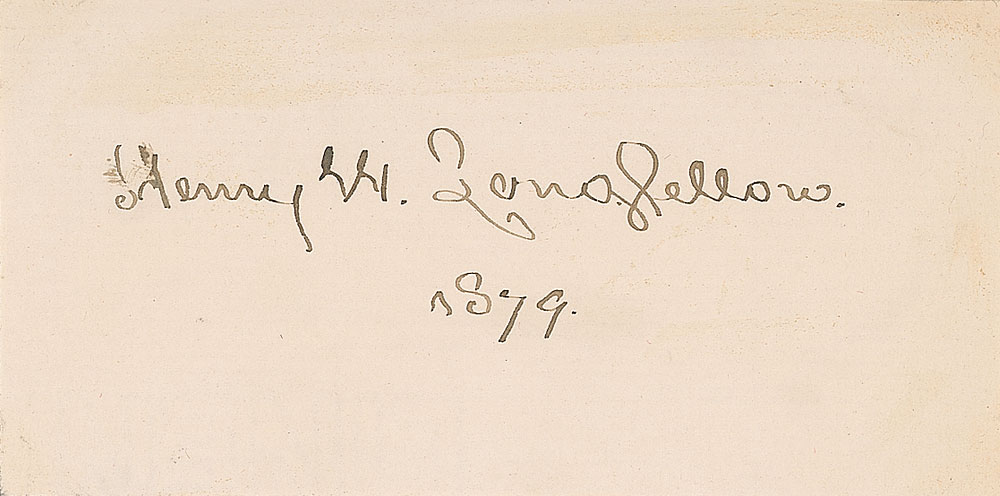 Henry W. Longfellow.
1879.